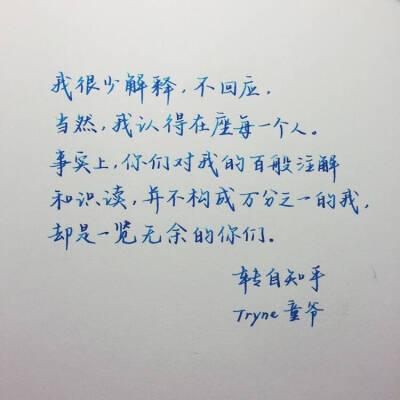 我很少解释,不回应.
当然,我认得在座每一个人。
事实上,你们对我的百般注解
和识读,并不构成万分之一的我,
却是一览无余的你们。
转自知乎
Tryne 童爷